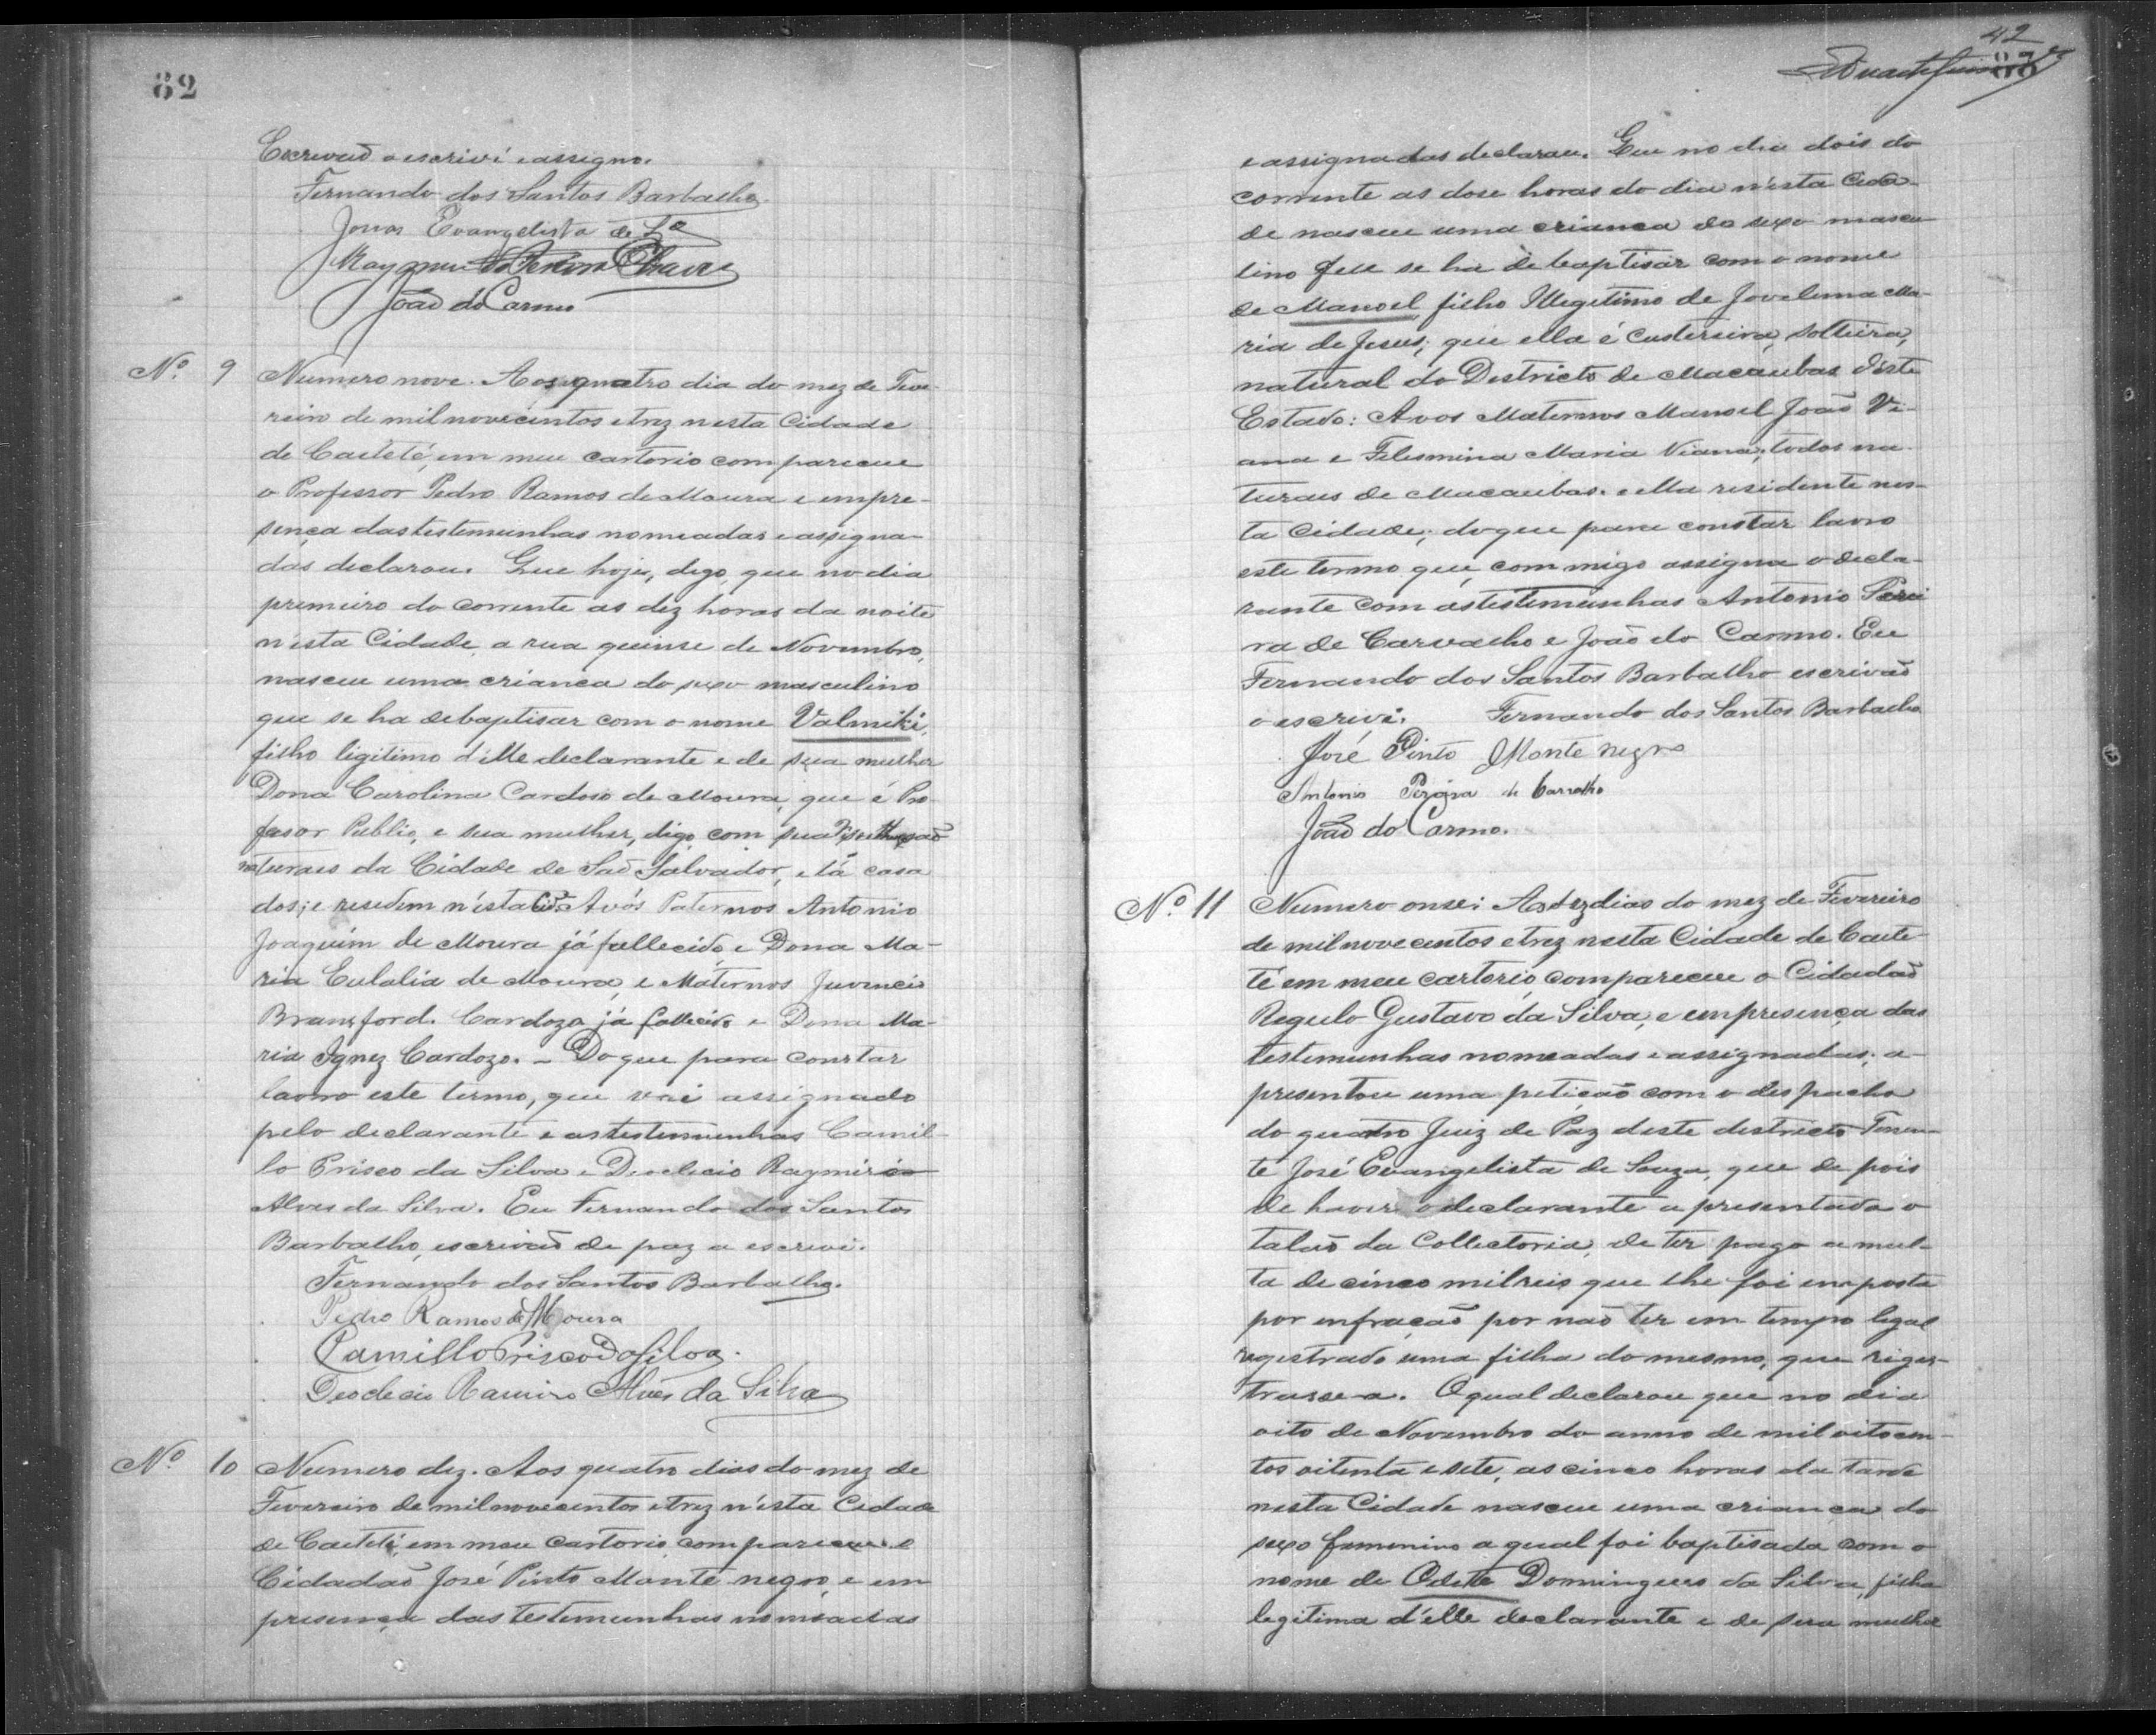 82
Escrivaõ o escrivi e assigno.
Fernando dos Santos Barbalho.
Jonas Evangelista de Sª
João do Carmo
Nº 9
Numero nove. Aos quatro dia do mez de Feve-
reiro de mil novecentos e trez nesta Cidade
de Caiteté, em meu cartorio compareceu
o Professor Pedro Ramos de Moura e em pre-
sença das testemunhas nomeadas e assigna-
das declarou. Que hoje, digo, que no dia
premeiro do corrente as dez horas da noite
n'esta Cidade, a rua quinse de Novembro,
nasceu uma crianca do sexo masculino
que se ha de baptisar com o nome Valmiki,
filho ligitimo d'elle declarante e de sua mulher
Dona Carolina Cardoso de Moura, que é Pro
fesor Publio, e sua mulher, digo, com sua
naturaes da Cidade de Saõ Salvador, e lá casa
dos; e resedem n'esta Cidᵉ. Avós Paternos Antonio
Joaquim de Moura já fallecido e Dona Ma-
ria Eulalia de Moura, e Maternos Juvencio
Bransford. Cardozo já fallecido e Dona Ma-
ria Ignez Cardozo. - Do que para constar
lavro este termo, que vai assignado
pelo declarante e as testemunhas Camil-
lo Prisco da Silva e Deoclecio Raymiro
Alves da Silva. Eu Fernando dos Santos
Barbalho, escrivaõ de paz o escrevi.
Fernando dos Santos Barbalho.
Pedro Ramos de Moura
Camillo Prisco Da Silva.
Deoclecio Ramiro Alves da Silva
Nº 10
Numero dez. Aos quatro dias do mez de
Fevereiro de mil novecentos e trez n'esta Cidade
de Caiteté, em meu cartorio compareceu o
Cidadaõ José Pinto Monte negro, e em
presença das testemunhas nomeadas
42
87
e assignadas declarou. Que no dia dois do
corrente as dose horas do dia n'esta Cida-
de nasceu uma crianca do sexo mascu
lino que se ha de baptisar com o nome
de Manoel, filho Illegetimo de Jovelina Ma-
ria de Jesus; que ella é custereira, solteira,
natural do Destricto de Macaubas deste
Estado: Avos Maternos Manoel João Vi-
ana e Felismina Maria Viana; todos na-
turaes de Macaubas. e ella residente nes-
ta Cidade; do que para constar lavro
este termo que com migo assigna o decla-
rante com as testemunhas Antonio Perei
ra de Carvalho e João do Carmo. Eu
Fernando dos Santos Barbalho escrivaõ
o escrivi. Fernando dos Santos Barbalho
José Pinto Monte negro
Antonio Pereira de Carvalho
João do Carmo.
Nº 11
Numero onse: Aos dez dias do mez de Fevereiro
de mil novecentos e trez nesta Cidade de Caite-
té em meu cartorio, compareceu o Cidadaõ
Regulo Gustavo da Silva, e em presença das
testemunhas nomeadas e assignadas, a-
presentou uma petiçaõ com o despacho
do quatro Juiz de Paz deste destricto Tenen-
te José Evangelista de Souza, que de pois
de haver o declarante a presentado o
talaõ da Collectoria, de ter pago a mul-
ta de cinco mil reis que lhe foi emposta
por enfraçaõ por naõ ter em tempo legal
regestrado uma filha do mesmo, que riges-
trasse-a. O qual declarou que no dia
oito de Novembro do anno de mil oitocen-
tos oitenta e sete, as cinco horas da tarde
nesta Cidade nasceu uma crianca do
sexo femenino a qual foi baptisada com o
nome de Odette Domingues da Silva, filha
legitima d'elle declarante e de sua mulher